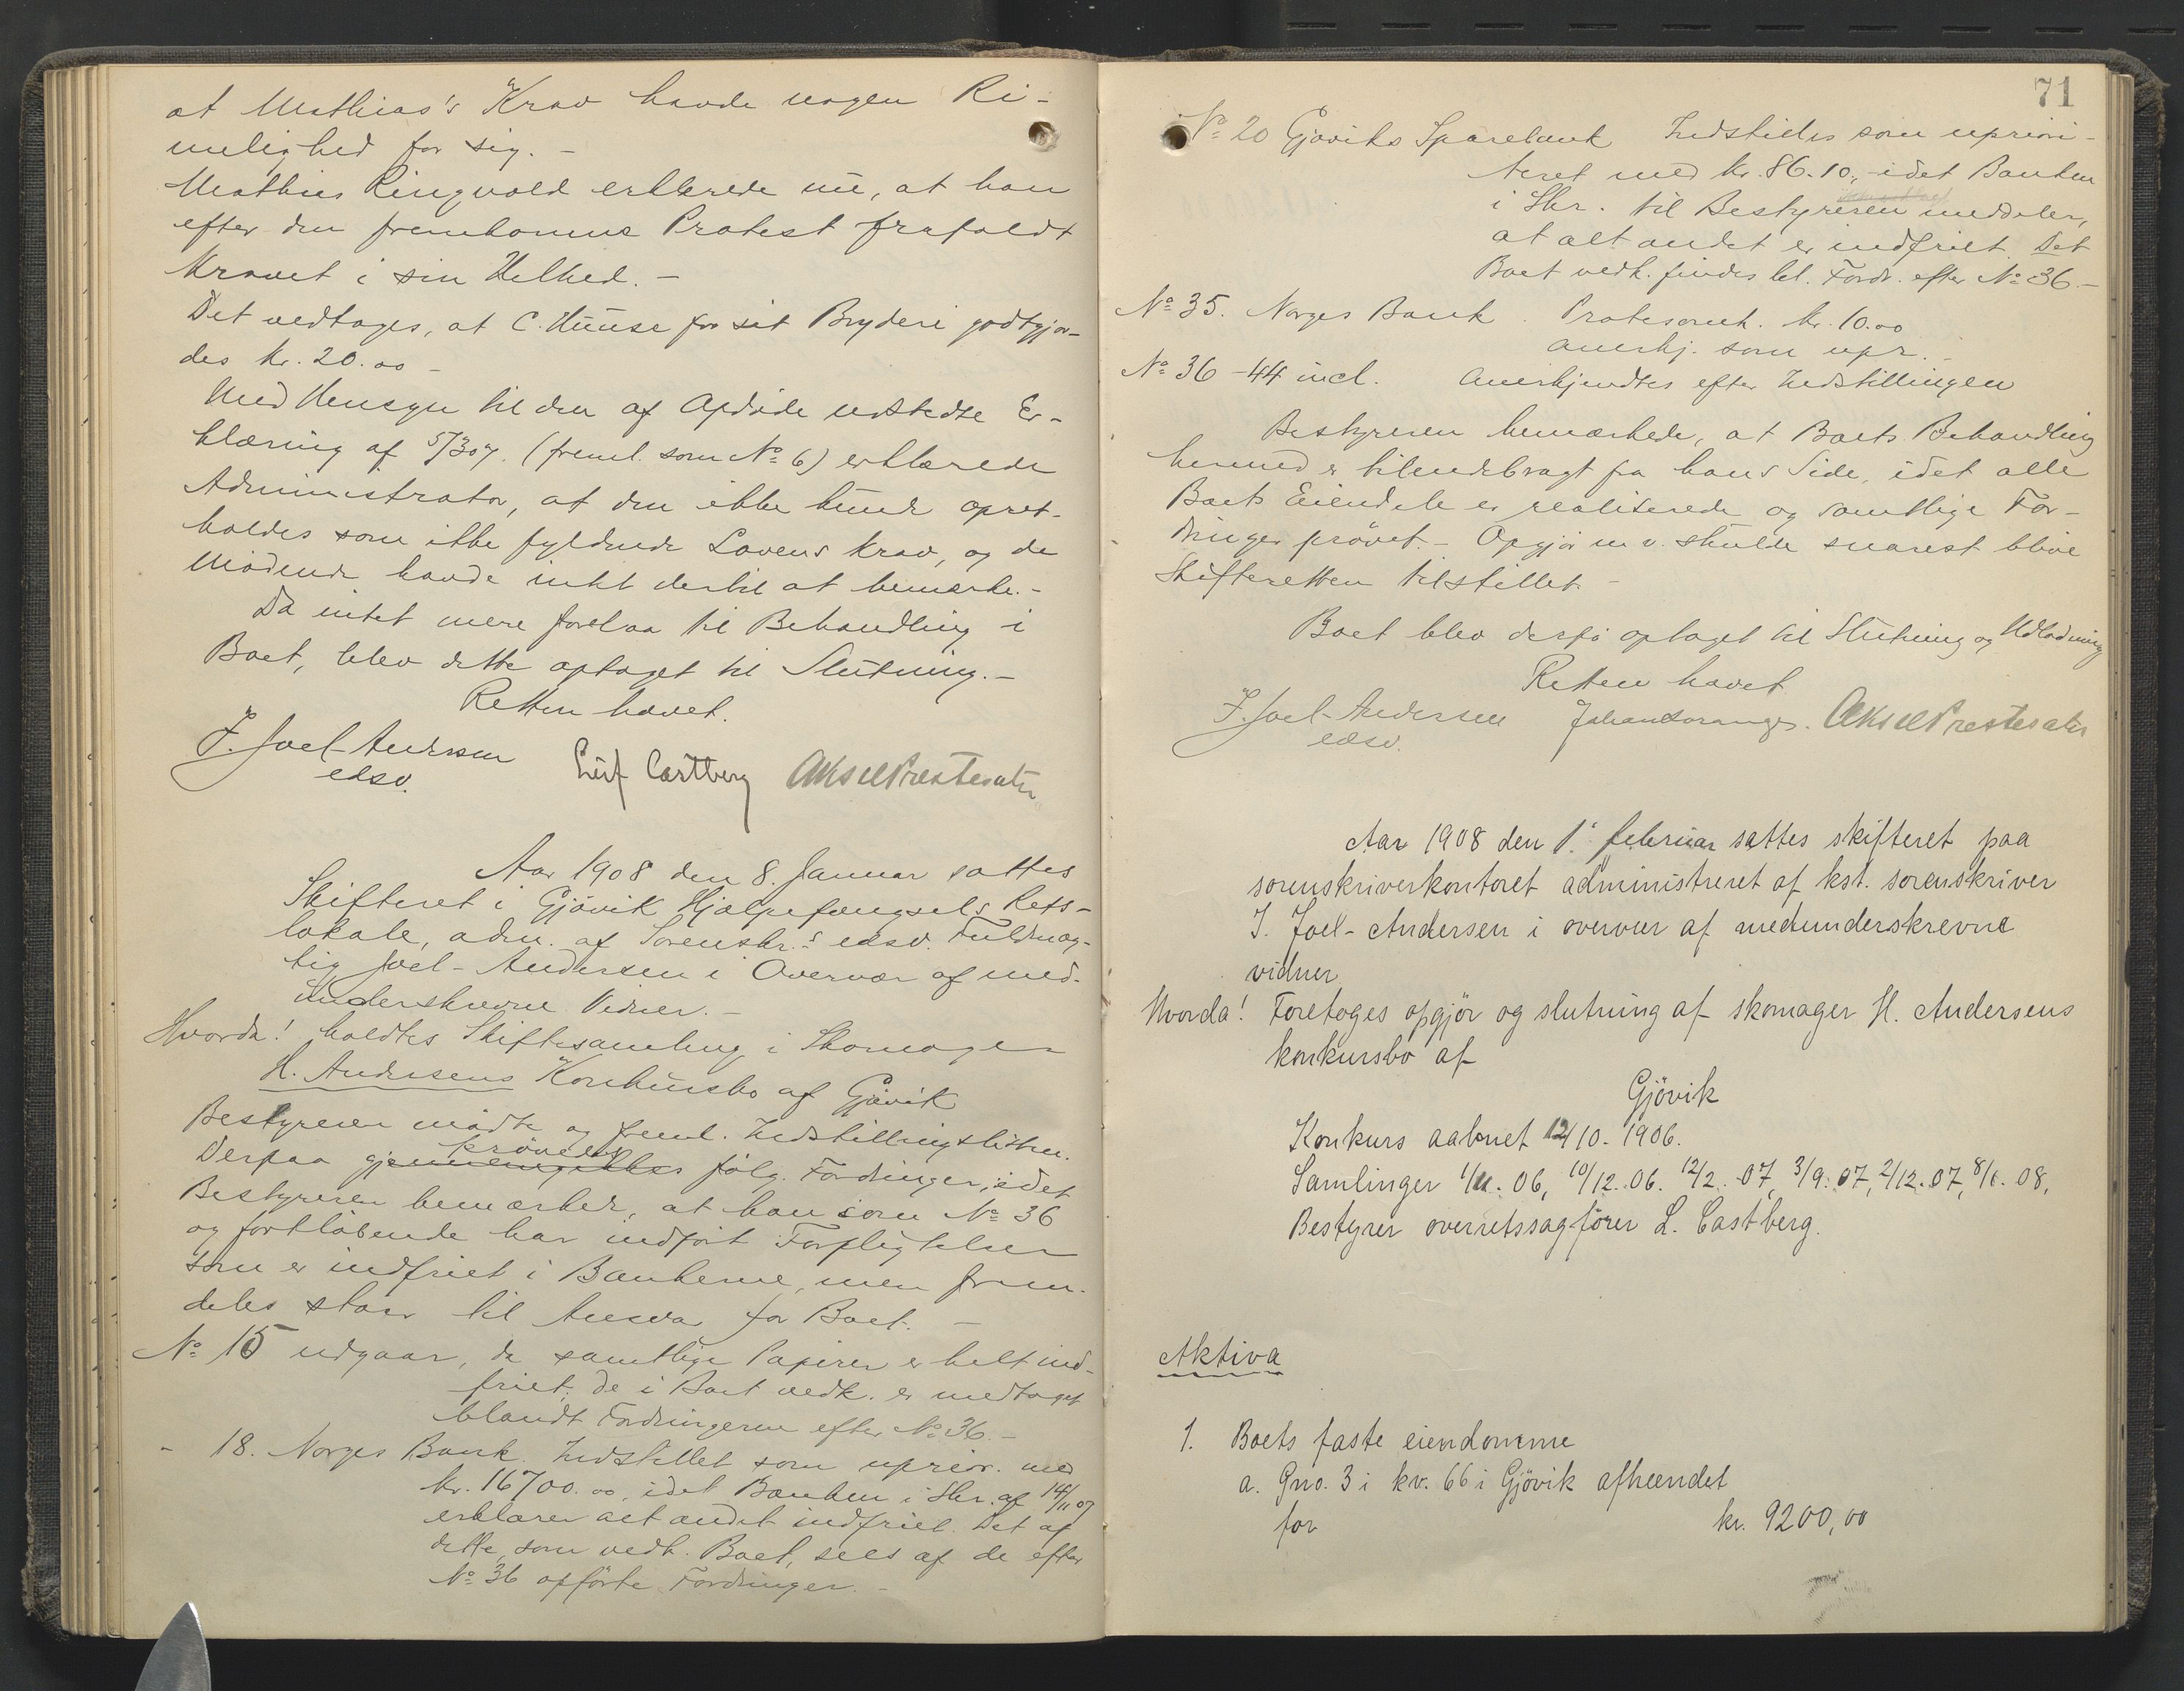 at Mathias's Krav havde nogen Ri-
melighed for sig. -
Mathias Ringvold erklærede nu, at han
efter den fremkomne Protest frafaldt
Kravet i sin Helhed. -
Det vedtages, at C. Huuse for sit Bryderi godtgjør-
des kr. 20.00 -
Med Hensyn til den af Afdøde udstedte Er-
klæring af 5/3 07. (freml. som No 6) erklærede
Administrator, at den ikke kunde opret-
holdes som ikke fyldende Lovens Krav, og de
Mødende havde intet dertil at bemærke. -
Da intet mere forelaa til Behandling i
Boet, blev dette optaget til Slutning. -
Retten hævet.
J. Joel-Andersen
edsv.
Leif Castberg
Aksel Prestesater
Aar 1908 den 8. Januar sattes
Skifteret i Gjøvik Hjælpefængsels Rets-
lokale, adm. af Sorenskr.s edsv. Fuldmæg-
tig Joel-Andersen i Overvær af med-
underskrevne Vidner. -
Hvorda! holdtes Skiftesamling i Skomager
H. Andersens Konkursbo af Gjøvik
Bestyreren mødte og freml. Indstillingslisten.
prøvedes
Derpaa gjennemgikkes følg. Fordringer, idet
Bestyreren bemærker, at han som No 36
og fortløbende har indført Forpligtelser
som er indfriet i Bankerne, men frem-
deles staar til Ansvar for Boet. -
No 15 udgaar, da samtlige Papirer er helt ind-
friet; de i Boet vedk. er medtaget
blandt Fordringerne efter No 36. -
- 18. Norges Bank. Indstillet som uprior. med
kr. 16700.00, idet Banken i Skr. af 14/11 07
erklærer alt andet indfriet. Det af
dette, som vedk. Boet, sees af de efter
No 36 opførte Fordringer. -
71
No 20 Gjøviks Sparebank Indstilles som upriori-
teret med kr. 86.10, idet Banken
i Skr. til Bestyreren meddeler,
at alt andet er indfriet. Det
Boet vedk. findes bl. Fordr. efter No 36. -
No 35. Norges Bank. Protesomk. kr. 10.00
anerkj. som upr. -
No 36 - 44 incl. Anerkjendtes efter Indstillingen
Bestyreren bemærkede, at Boets Behandling
hermed er tilendebragt fra hans Side, idet alle
Boets Eiendele er realiserede og samtlige For-
dringer prøvet. - Opgjør m.v. skulde snarest blive
Skifteretten tilstillet. -
Boet blev derfor optaget til Slutning og Udlodning
Retten hævet
J. Joel-Andersen
edsv.
Aksel Prestesater
Aar 1908 den 1. februar sattes skifteret paa
sorenskriverkontoret administreret af kst. sorenskriver
J. Joel-Andersen i overvær af medunderskrevne
vidner
Hvorda! Foretoges opgjør og slutning af skomager H. Andersens
konkursbo af
Gjövik
Konkurs aabnet 12/10-1906.
Samlinger 1/11. 06, 10/12. 06. 12/2. 07, 3/9. 07, 2/12. 07, 8/1. 08,
Bestyrer overretssagfører L. Castberg.
Aktiva
1. Boets faste eiendomme
a. Gno. 3 i kv. 66 i Gjövik afhændet
for kr. 9200,00